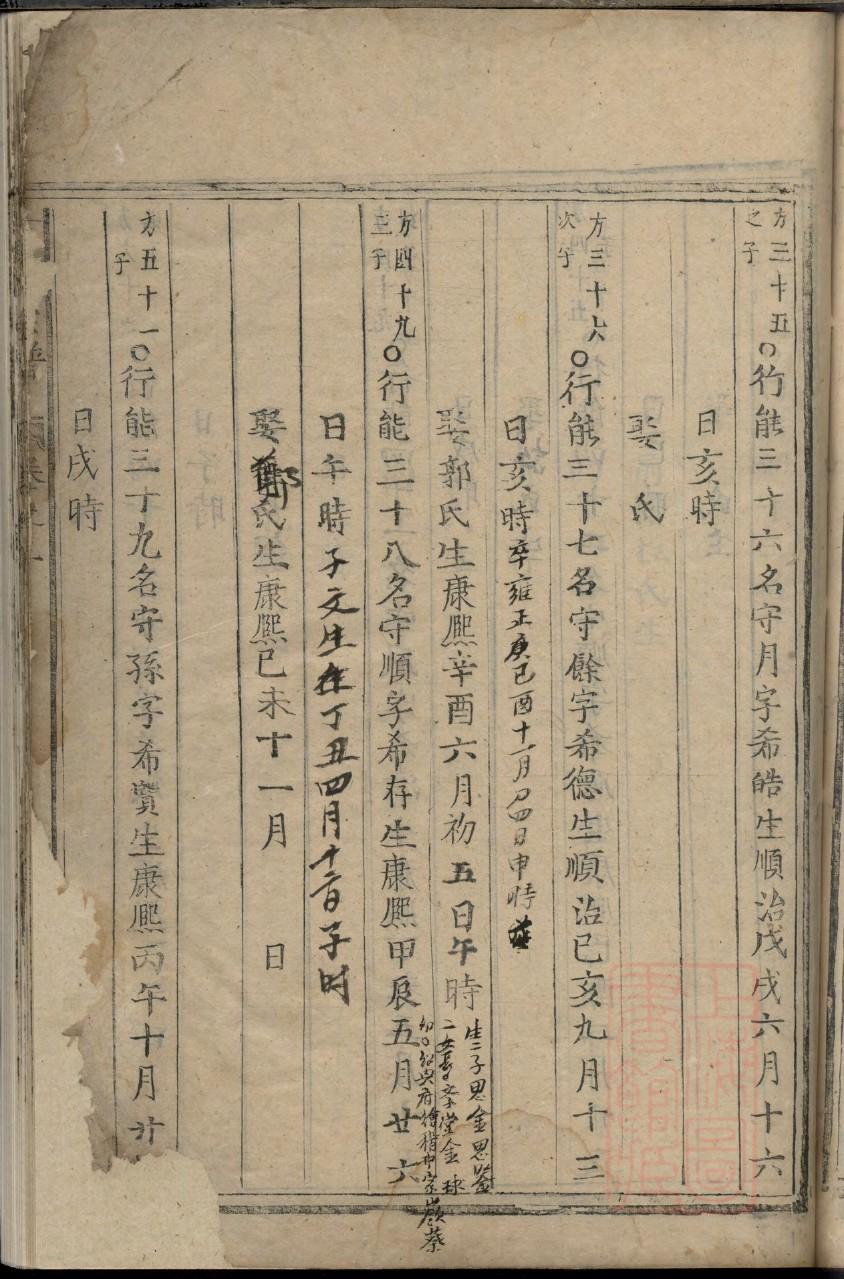 方三十五
之子
○行能三十六名守月字希皓生順治戊戌六月十六
日亥時
娶 氏
方三十六
次子
○行能三十七名守餘字希德生順治己亥九月十三
日亥時卒雍正 己酉十一月 四日申時
娶郭氏生康熙辛酉六月初五日午時
生二子思金思鉴
二女長 金 球
蔡
方四十九
三子
○行能三十八名守順字希存生康熙甲辰五月廿六
日午時子文生在丁丑四月十 日子时
娶鄭氏生康熙己未十一月 日
方五十一
子
○行能三十九名守孫字希賢生康熙丙午十月廿
日戌時
譜